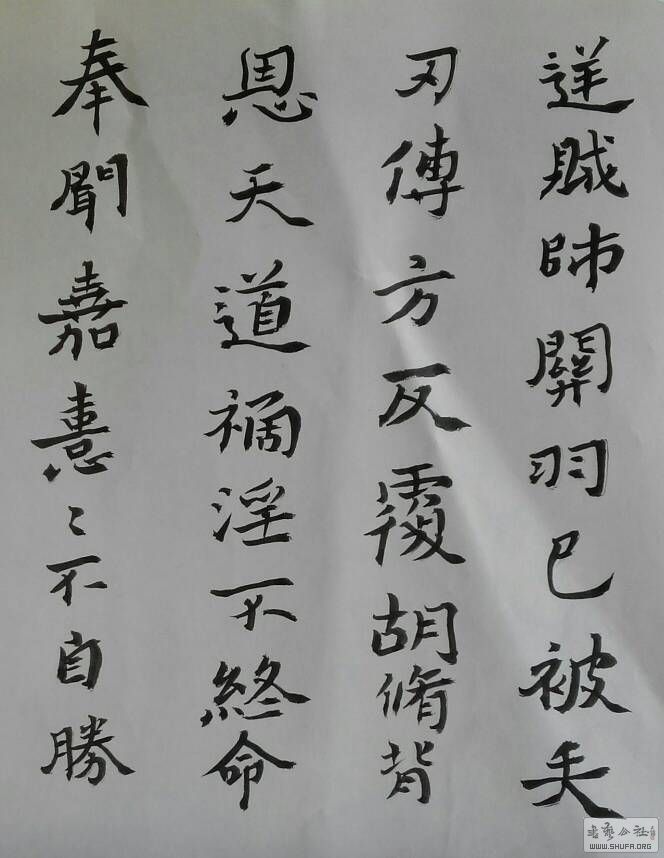 逆賊帥關羽已被矢
刃傅方反覆胡脩背
恩天道禍淫不終命
奉聞嘉憙〻不自勝
书艺公社
WWW.SHUFA.ORG